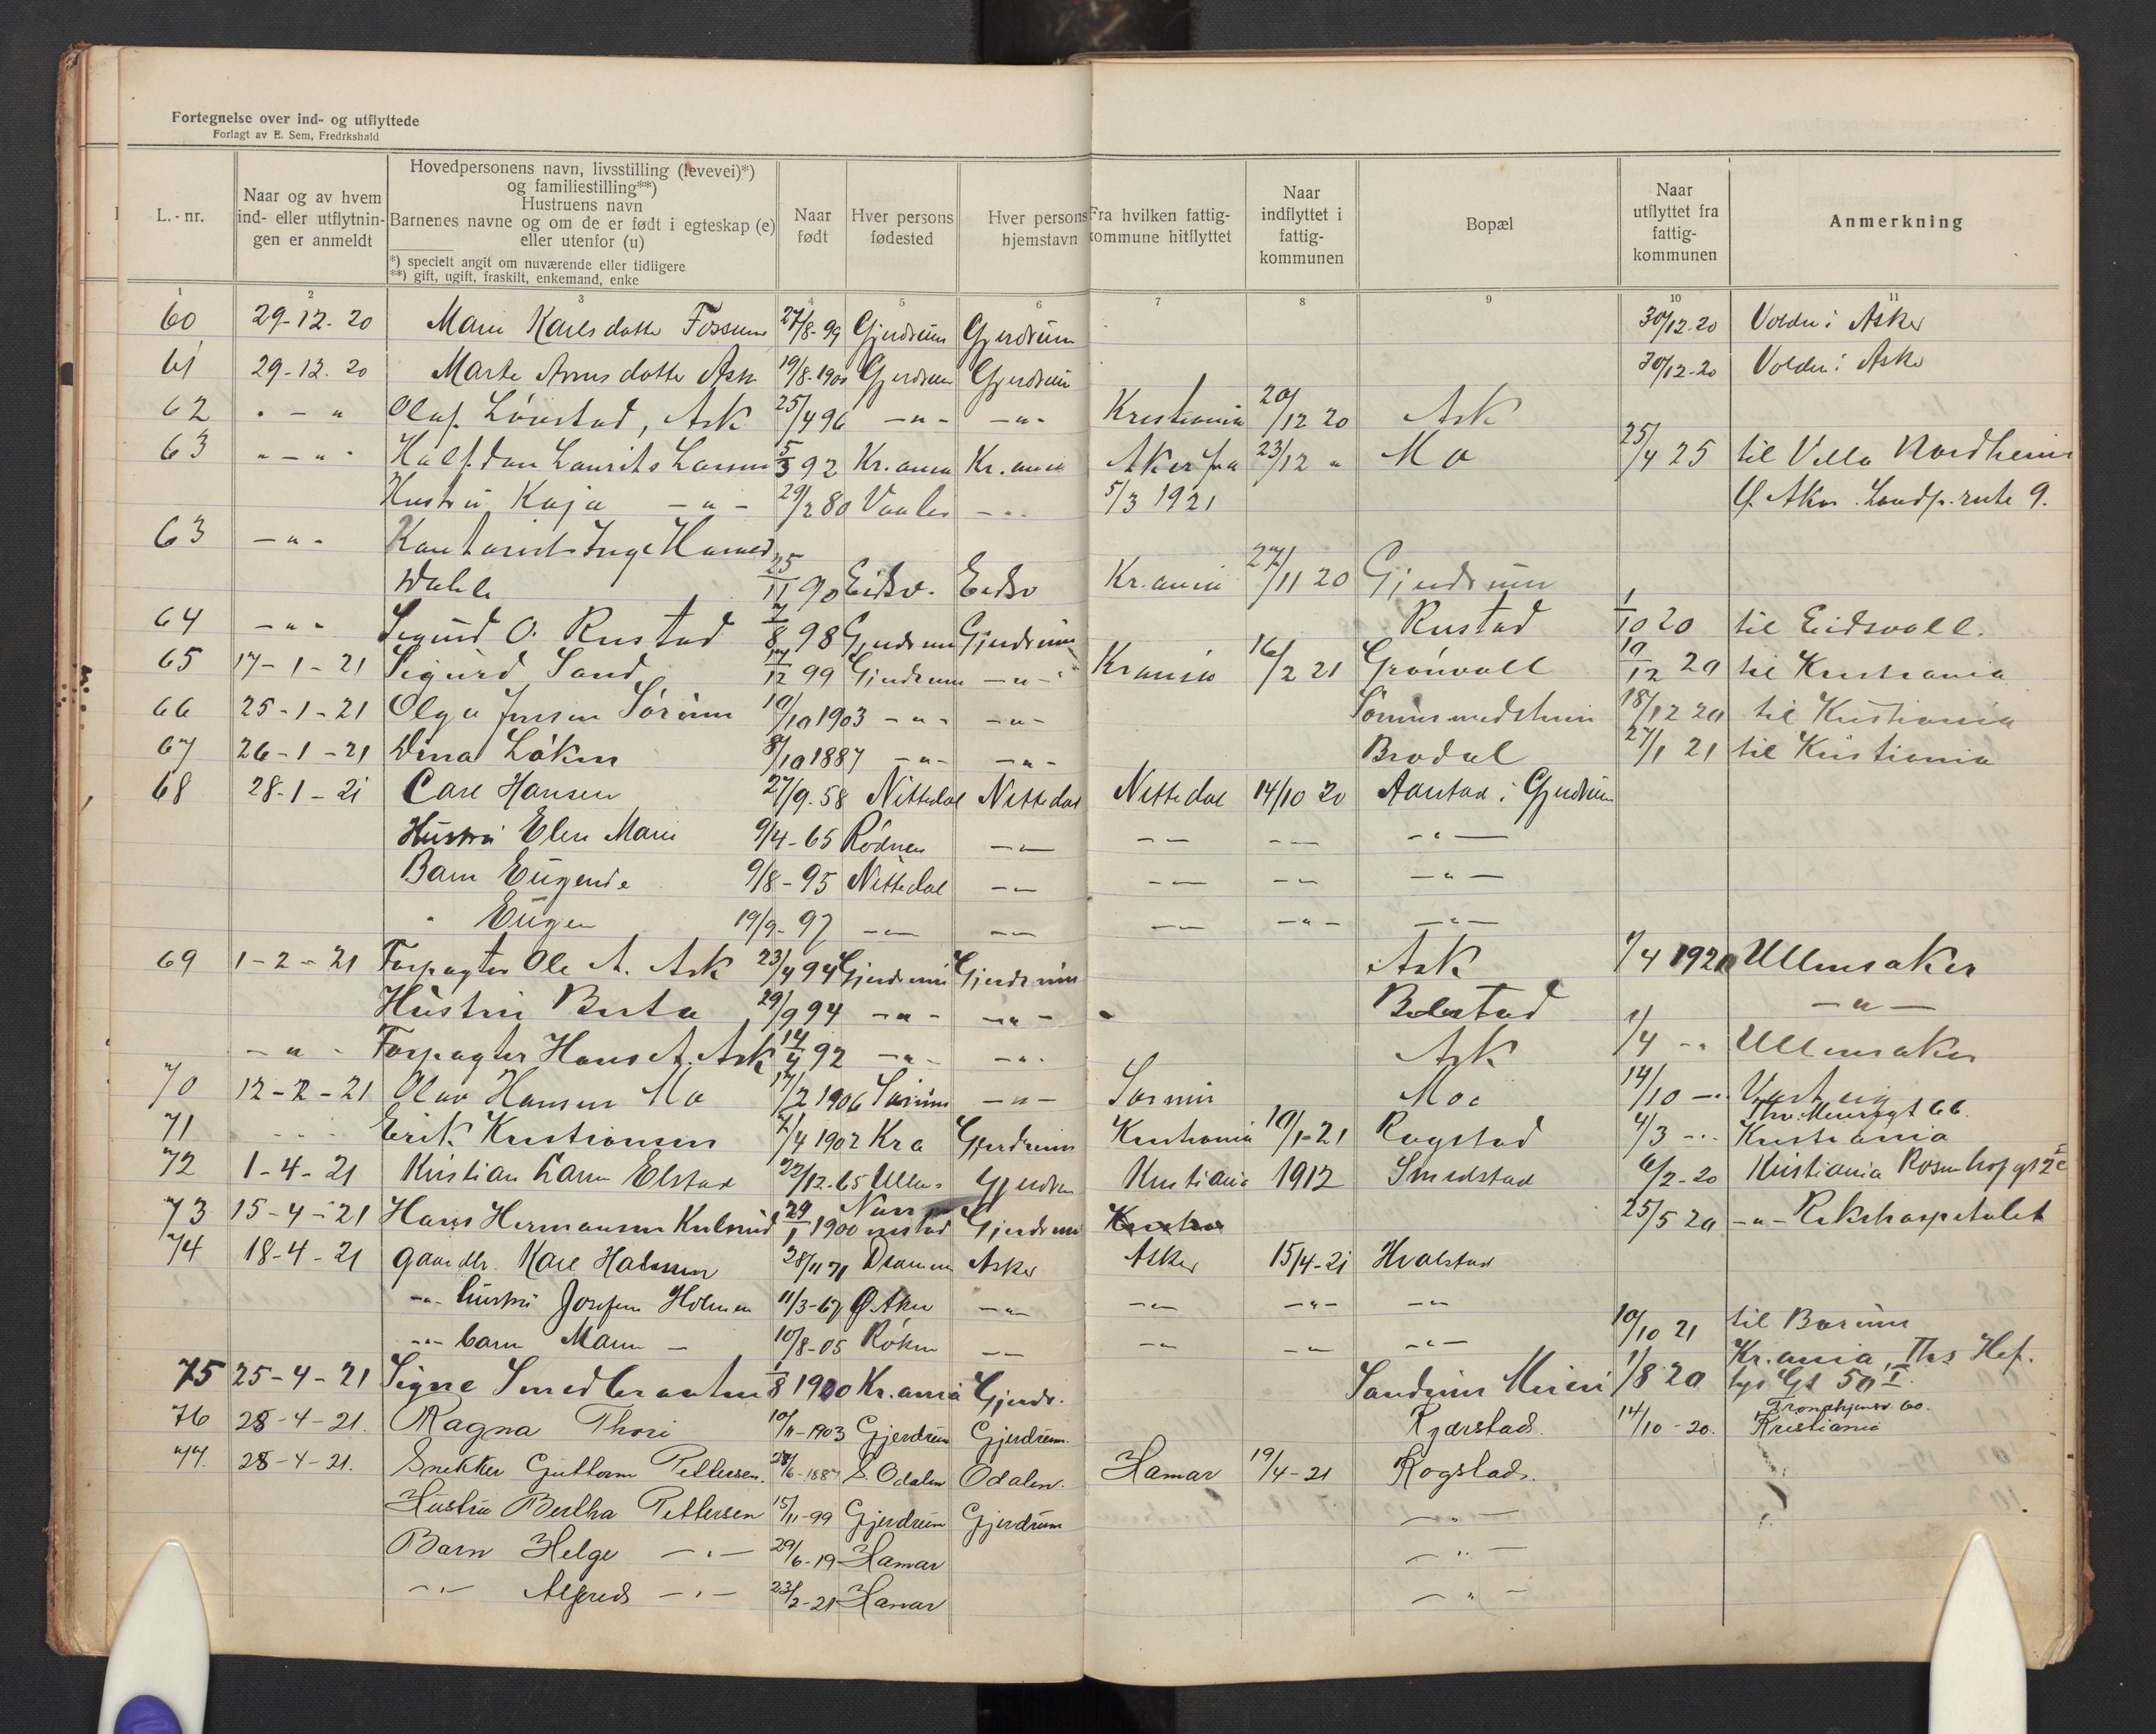 Fortegnelse over ind- og utflyttede
Forlagt av E. Sem, Fredrkshald
L.-nr.
Naar og av hvem ind- eller utflytnin- gen er anmeldt
Hovedpersonens navn, livsstilling (levevei)*)
og familiestilling**)
Hustruens navn
Barnenes navne og om de er født i egteskap (e)
eller utenfor (u)
*) specielt angit om nuværende eller tidligere
**) gift, ugift, fraskilt, enkemand, enke
Naar født
Hver persons fødested
Hver persons hjemstavn
Fra hvilken fattig- kommune hitflyttet
Naar indflyttet i fattig- kommunen
Bopæl
Naar utflyttet fra fattig- kommunen
Anmerkning
1 2 3 4 5 6 7 8 9 10 11
60 29-12-20 Marie Karlsdatter Fossum 27/8-99 Gjerdrum Gjerdrum 30/12-20 Volden i Asker
61 29-12-20 Marte Arnesdatter Ask 19/8-1900 Gjerdrum Gjerdrum 30/12-20 Volden i Asker
62 " - " Olaf Lönstad, Ask 25/4 96 -"- -"- Kristiania 20/12 20 Ask
63 " - " - Halfdan Laurits Larsen 5/3 92 Kr.ania Kr.ania Aker fra 23/12 " Mo 25/4 25 til Villa Nordheim
Hustru Kaja -"- 29/2 80 Vaaler -"- 5/3 1921 Ø. Aker Landp.rute 9.
63 -"- Kontorist Inge Harald
Dahle 25/11 90 Eidsv. Eidsv Kr.ania 27/11 20 Gjerdrum
64 -"- Sigurd O. Rustad 7/8 98 Gjerdrum Gjerdrum Rustad 1/10 20 til Eidsvoll.
65 17-1-21 Sigurd Sand 17/12 99 Gjerdrum -"- Krania 16/2 21 Grönvoll 10/12 20 til Kristiania
66 25-1-21 Olga Jensen Sörum 10/10 1903 -"- -"- 18/12 20 til Kristiania
67 26-1-21 Dina Löken 8/10 1887 -"- -"- Brodal 27/1 21 til Kristiania
68 28-1-21 Carl Hansen 27/9-58 Nittedal Nittedal Nittedal 14/10 20 Aanstad i Gjerdrum
Hustru Elen Marie 9/4-65 Rödnes -"- -"- -"- -"-
Barn Eugenie 9/8-95 Nittedal -"- -"- -"- -"-
" Eugen 19/9-97 -"- -"- -"- -"- -"-
69 1-2-21 Forpagter Ole A. Ask 23/4 94 Gjerdrum Gjerdrum Ask 1/4 1920 Ullensaker
Hustru Berta 29/9 94 -"- -"- -"-
-"- Forpagter Hans A. Ask 14/4 92 -"- -"- Ask 1/4 -"- Ullensaker
70 12-2-21 Olav Hansen Mo 17/2 1906 Sörum -"- Sörum Moe 14/10 -"-
Thv. Meyersgt 66.
71 -"- Erik Kristiansen 7/4 1902 Kra Gjerdrum Kristiania 10/1-21 Rogstad 4/3 -"- Kristiania
72 1-4-21 Kristian Larsen Elstad 22/12-65 Ullens Gjerdrum Kristiania 1912 Smedstad 6/2-20 Kristiania Rosenhofgt 2c
73 15-4-21 Hans Hermansen Kulsrud 29/1 1900 Nannestad Gjerdrum Kristia 25/5 20 -"- Rikshospitalet
74 18-4-21 Gaardbr. Karl Halvorsen 28/11 71 Drammen Asker Asker 15/4-21 Hvalstad
-"- hustru Josefine Holmen 11/3-67 Ø. Aker -"- -"- -"- -"-
-"- barn Marie - 10/8-05 Röken -"- -"- -"- -"- 10/10 21 til Bærum
75 25-4-21 Signe Smedbraaten 1/8 1900 Kr.ania Gjerdr. Sandum Meieri 1/8 20 Kr.ania, Ths Hef.
tys Gt 50 I.
Trondhjemsv. 60.
76 28-4-21. Ragna Thori 10/11-1903 Gjerdrum Gjerdrum. Kjærstad. 14/10-20. Kristiania
77. 28-4-21. Snekker Guttorm Pettersen. 28/6-1887 S. Odalen Odalen. Hamar 19/4-21 Rogstad.
Hustru Bertha Pettersen 15/11-99 Gjerdrum Gjerdrum -"-
Barn Helge -"- 29/6-19 Hamar -"-
-"- Alfred -"- 23/2-21 Hamar -"-